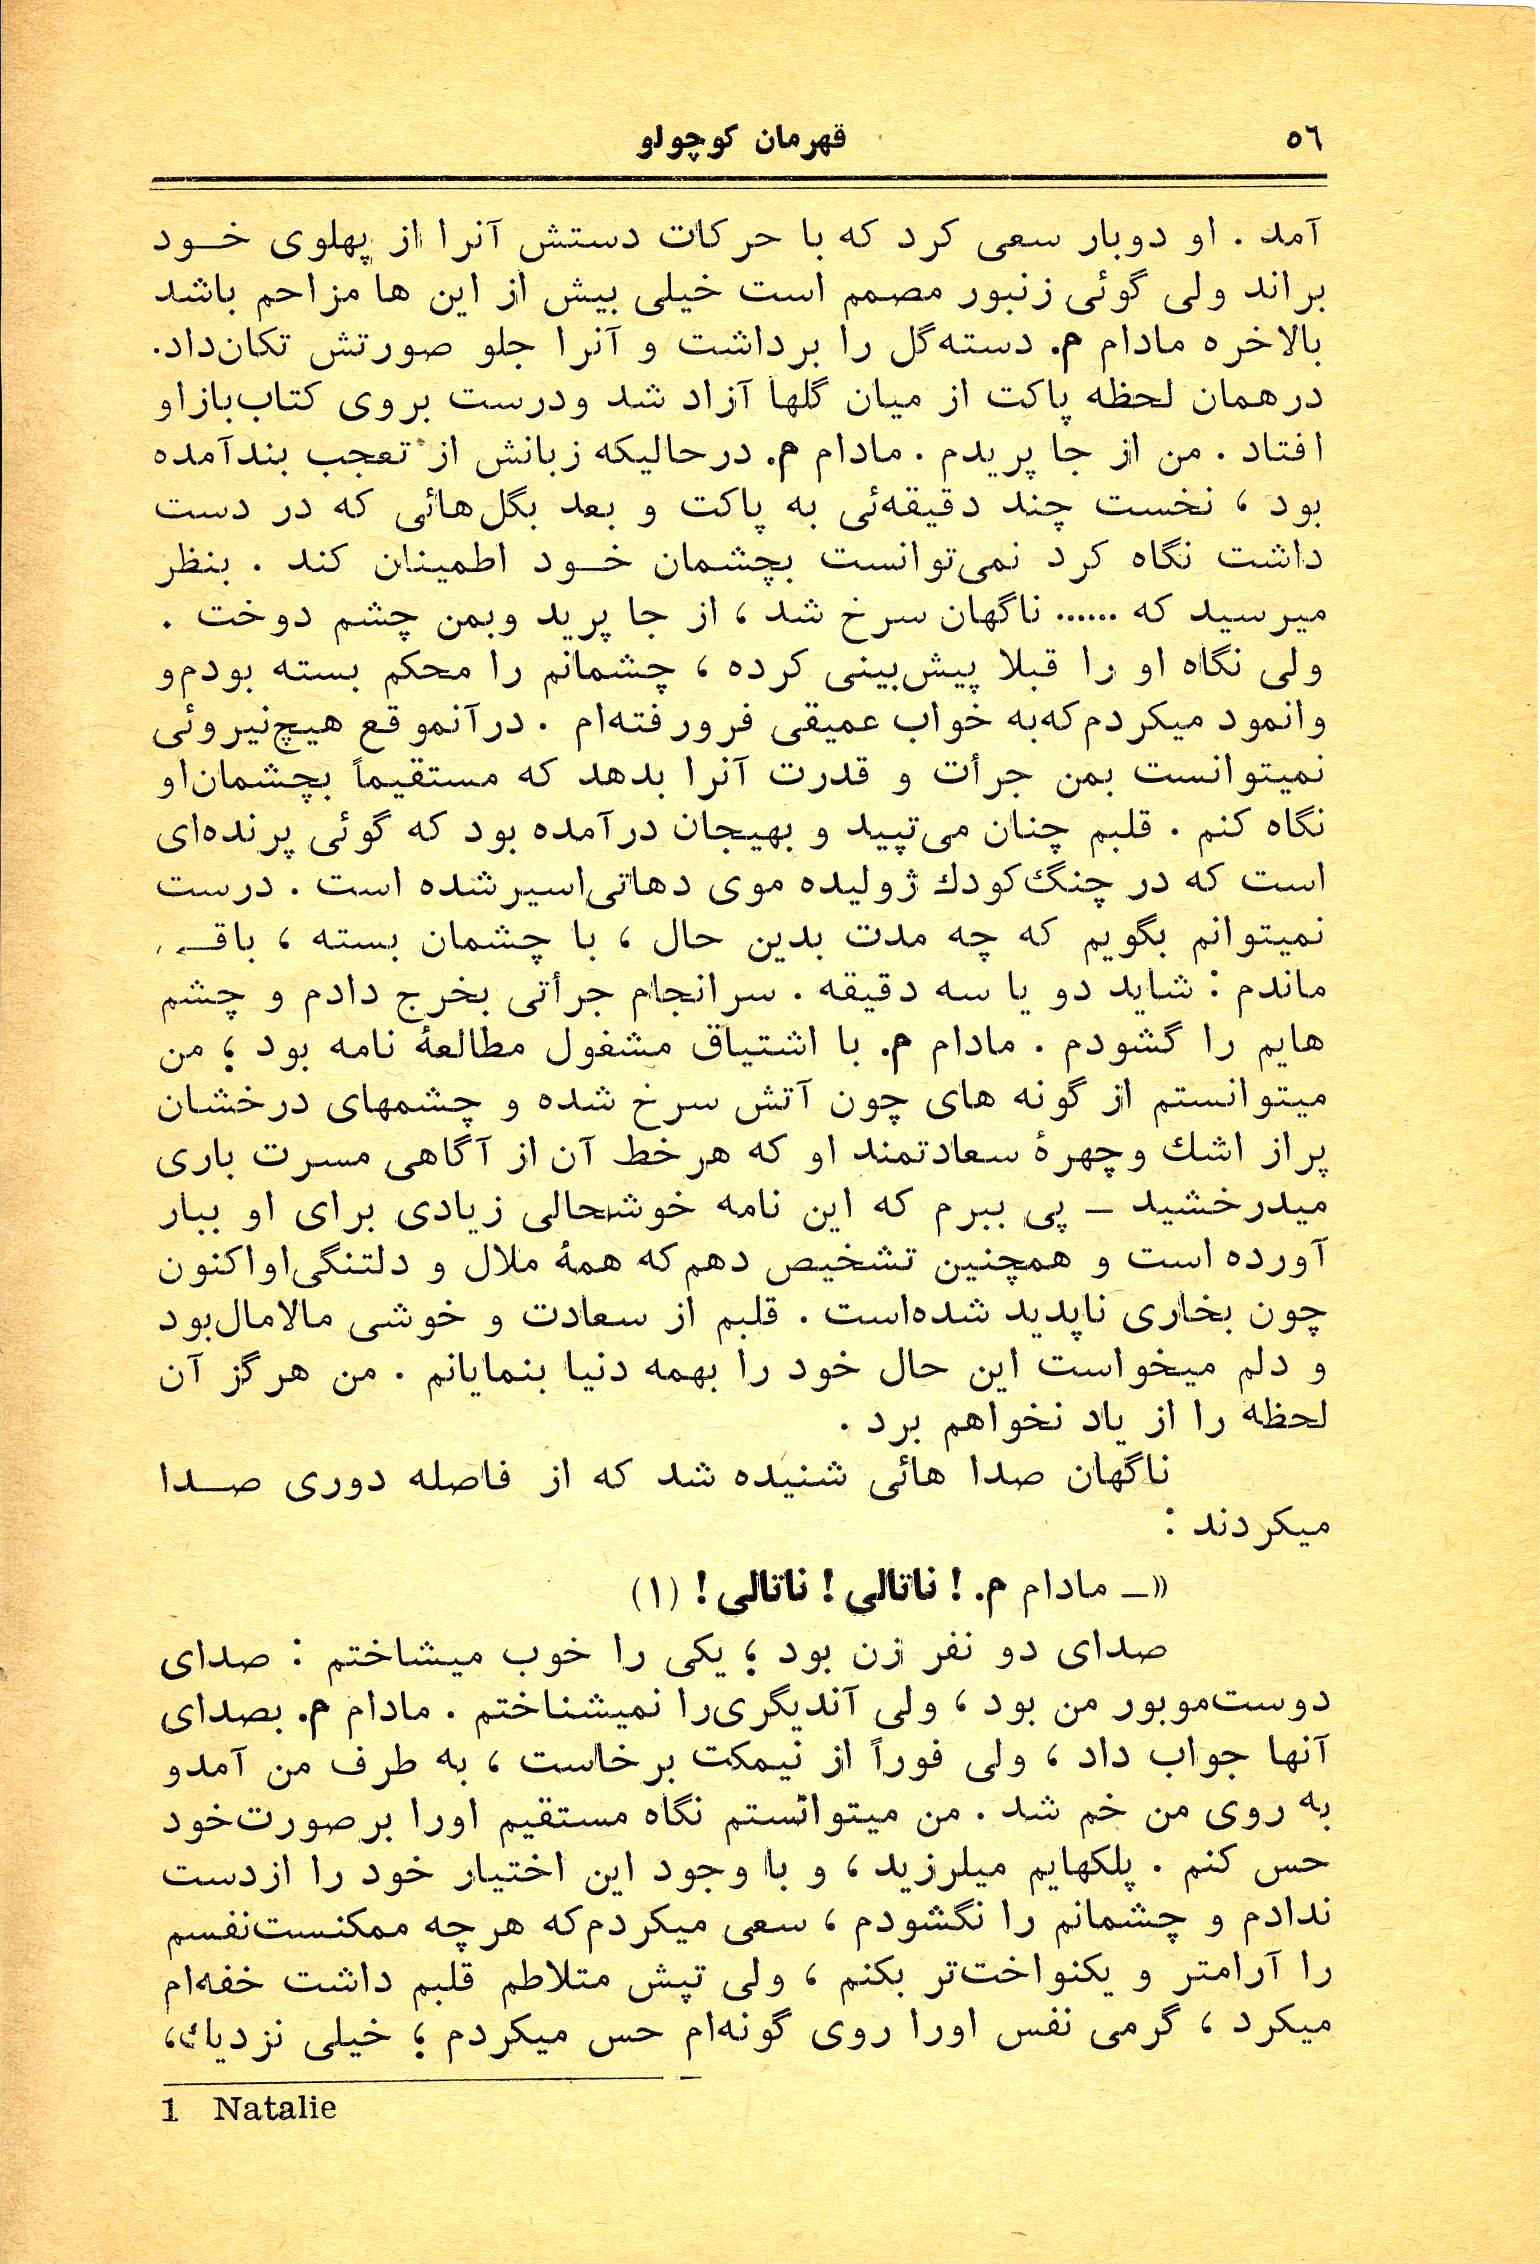 ٥٦
قهرمان كوچولو
آمد . او دوبار سعی کرد که با حرکات دستش آنرا از پهلوی خـود
براند ولی گوئی زنبور مصمم است خیلی بیش از این ها مزاحم باشد
بالاخره مادام م. دسته‌گل را برداشت و آنرا جلو صورتش تکان‌داد.
درهمان لحظه پاکت از میان گلها آزاد شد ودرست بروی کتاب‌بازاو
افتاد . من از جا پریدم . مادام م. درحالیکه زبانش از تعجب بندآمده
بود ، نخست چند دقیقه‌ئی به پاکت و بعد بگل‌هائی که در دست
داشت نگاه کرد نمی‌توانست بچشمان خـود اطمینان کند . بنظر
میرسید که ...... ناگهان سرخ شد ، از جا پرید وبمن چشم دوخت .
ولی نگاه او را قبلا پیش‌بینی کرده ، چشمانم را محکم بسته بودم‌و
وانمود میکردم‌که‌به خواب عمیقی فرورفته‌ام . درآنموقع هیچ‌نیروئی
نمیتوانست بمن جرأت و قدرت آنرا بدهد که مستقیماً بچشمان‌او
نگاه کنم . قلبم چنان می‌تپید و بهیجان درآمده بود که گوئی پرنده‌ای
است که در چنگ‌کودك ژولیده موی دهاتی‌اسیرشده است . درست
نمیتوانم بگویم که چه مدت بدین حال ، با چشمان بسته ،
ماندم : شاید دو یا سه دقیقه . سرانجام جرأتی بخرج دادم و چشم
هایم را گشودم . مادام م. با اشتیاق مشغول مطالعهٔ نامه بود ؛ من
میتوانستم از گونه های چون آتش سرخ شده و چشمهای درخشان
پراز اشك وچهرهٔ سعادتمند او که هرخط آن از آگاهی مسرت باری
میدرخشید ــ پی ببرم که این نامه خوشحالی زیادی برای او ببار
آورده است و همچنین تشخیص دهم‌که همهٔ ملال و دلتنگی‌اواکنون
چون بخاری ناپدید شده‌است . قلبم از سعادت و خوشی مالامال‌بود
و دلم میخواست این حال خود را بهمه دنیا بنمایانم . من هرگز آن
لحظه را از یاد نخواهم برد .
ناگهان صدا هائی شنیده شد که از فاصله دوری صـدا
میکردند :
«ــ مادام م. ! ناتالی ! ناتالی ! (۱)
صدای دو نفر زن بود ؛ یکی را خوب میشاختم : صدای
دوست‌موبور من بود ، ولی آندیگری‌را نمیشناختم . مادام م. بصدای
آنها جواب داد ، ولی فوراً از نیمکت برخاست ، به طرف من آمدو
به روی من خم شد . من میتوانستم نگاه مستقیم اورا برصورت‌خود
حس کنم . پلکهایم میلرزید ، و با وجود این اختیار خود را ازدست
ندادم و چشمانم را نگشودم ، سعی میکردم‌که هرچه ممکنست‌نفسم
را آرامتر و یکنواخت‌تر بکنم ، ولی تپش متلاطم قلبم داشت خفه‌ام
میکرد ، گرمی نفس اورا روی گونه‌ام حس میکردم ؛ خیلی نزدیك،
1 Natalie